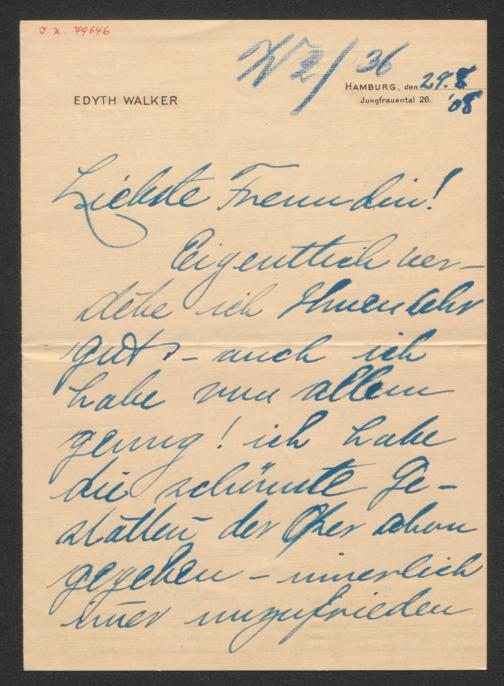 I.N. 79646
36
HAMBURG, den 29.8
EDYTH WALKER
Jungfrauental 26. '08
Liebste Freundin!
Eigentlich ver-
stehe ich Ihnen sehr
gut - auch ich
habe nun allem
genug! ich habe
die schönste Ge-
stalten der Oper schon
gegeben - innerlich
imer unzufrieden